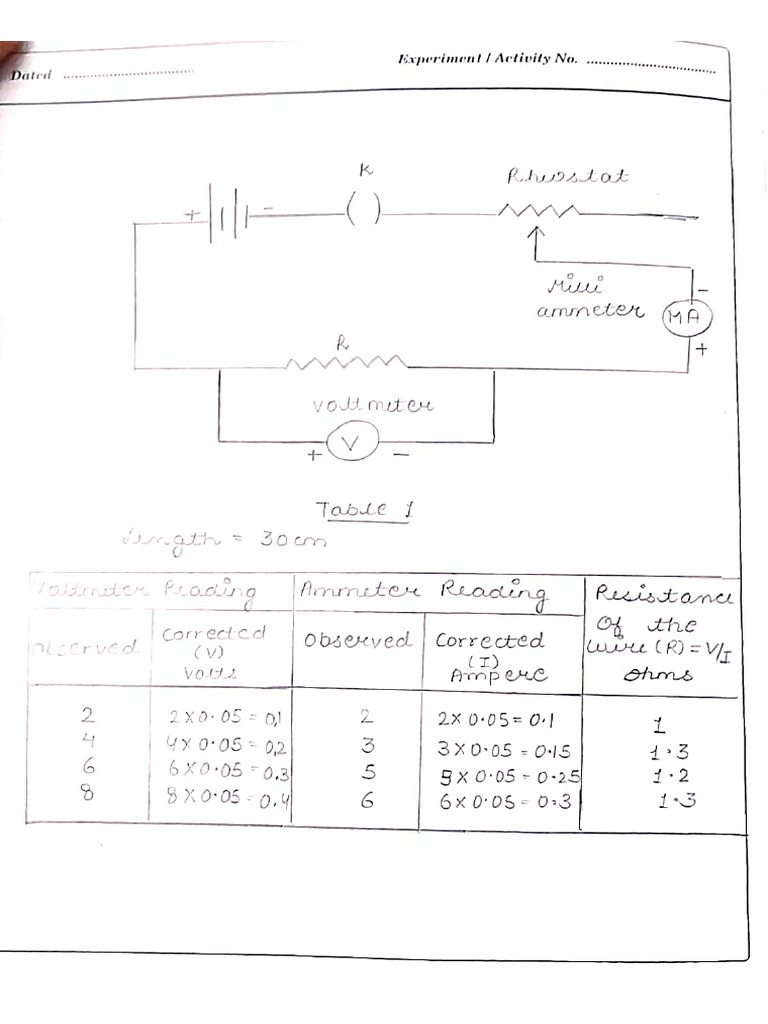 Experiment / Activity No. ................................
Dated ................................
K
Rheostat
+ -
Milli
ammeter
-
MA
+
R
Voltmiter
+ V -
Table 1
Length = 30 cm
Voltmeter Reading Ammeter Reading Resistance
Of the
wire (R) = V/I
ohms
Observed Corrected (V) Volts Observed Corrected (I) Ampere
2 2 X 0.05 = 0,1 2 2 X 0.05 = 0.1 1
4 4 X 0.05 = 0,2 3 3 X 0.05 = 0.15 1.3
6 6 X 0.05 = 0.3 5 5 X 0.05 = 0.25 1.2
8 8 X 0.05 = 0.4 6 6 X 0.05 = 0.3 1.3